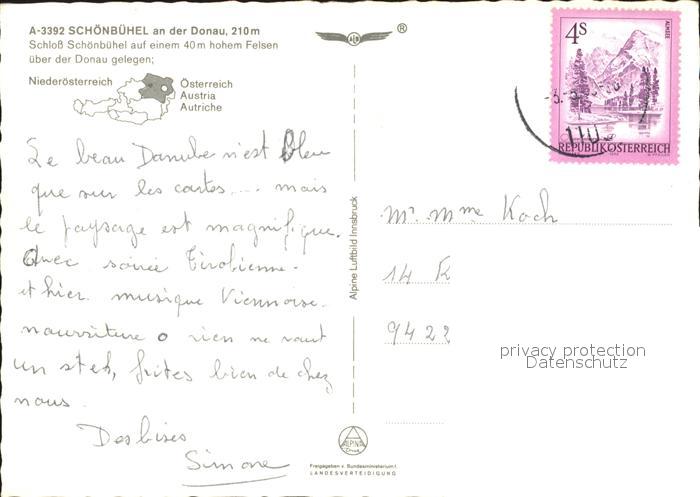 A-3392 SCHÖNBÜHEL an der Donau, 210 m
Schloß Schönbühel auf einem 40 m hohem Felsen
über der Donau gelegen;
Niederösterreich
Österreich
Austria
Autriche
Le beau Danube n'est bleu
que sur les cartes.... mais
le paysage est magnifique.
Avec soirée Tirolienne.
et hier musique Viennoise.
nourriture o rien ne vaut
un stek, frites bien de chez
nous.
Des bises
Simone
Alpine Luftbild Innsbruck
ALPINE
Freigegeben v. Bundesministerium f.
LANDESVERTEIDIGUNG
®
4S
ALMSEE
REPUBLIK ÖSTERREICH
110
Mr. Mme Koch
14 K
9422
privacy protection
Datenschutz